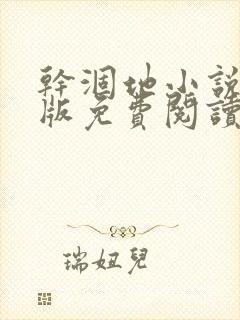 幹涸地小說
版免費閱讀
瑞妞兒